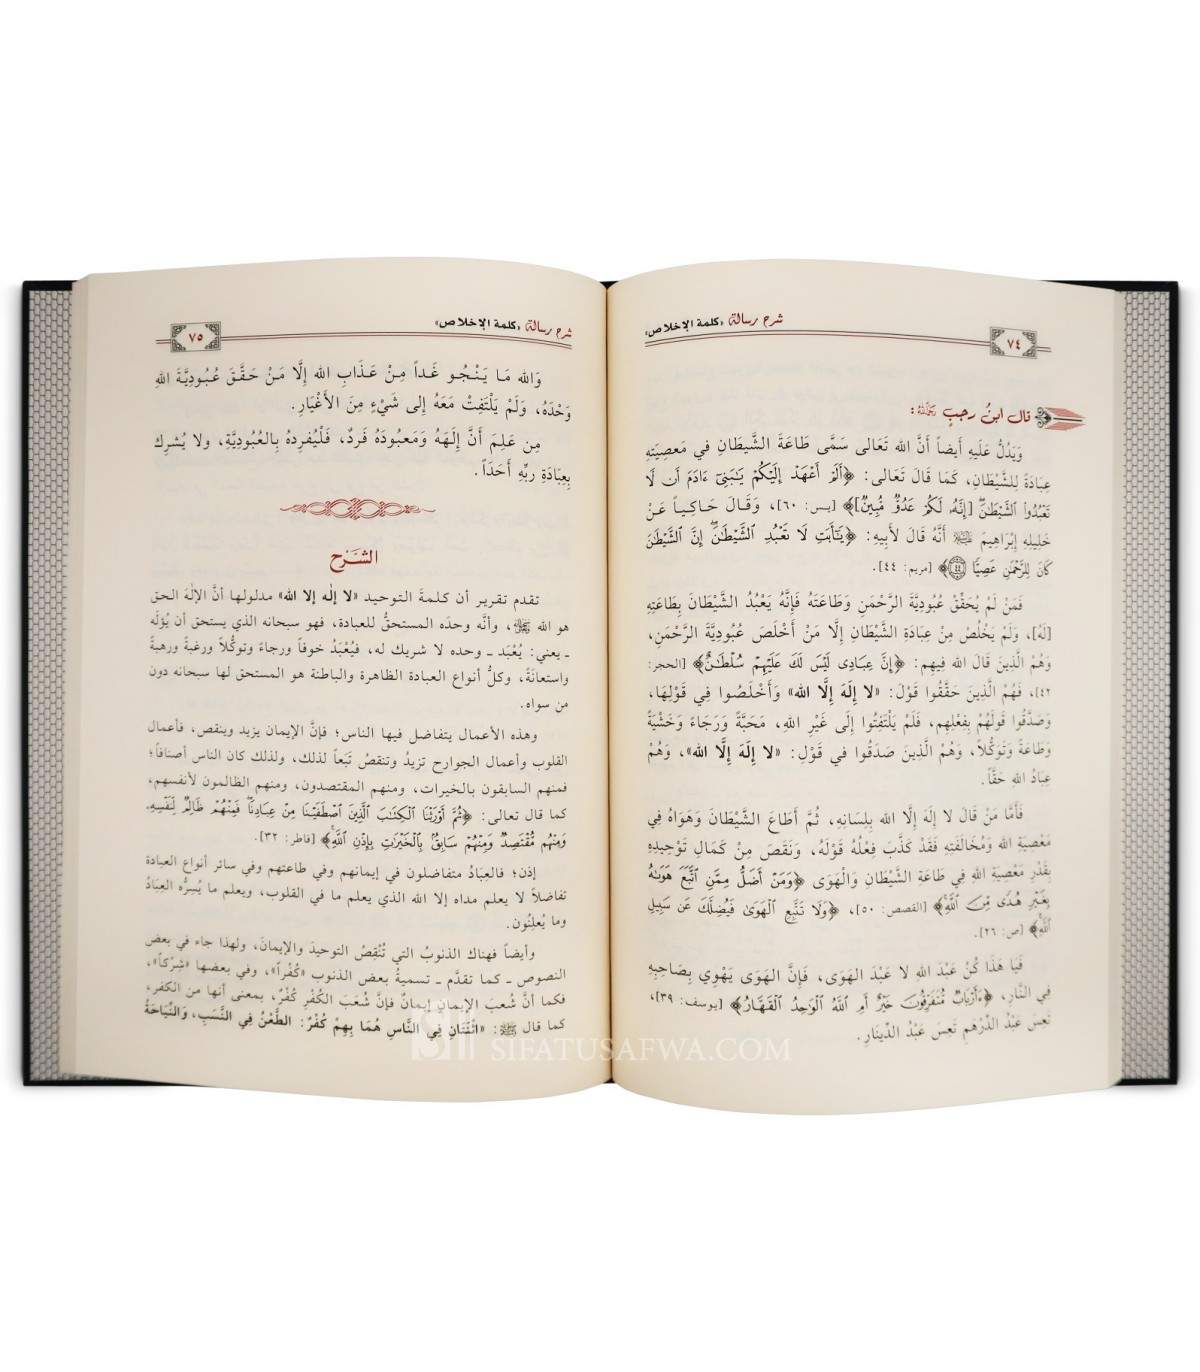 شرح رسالة «كلمة الإخلاص»
٧٤
قال ابنُ رجبٍ رَحِمَهُ اللهُ:
وَيَدُلُّ عَلَيهِ أَيضاً أَنَّ الله تَعَالى سَمَّى طَاعَةَ الشَّيطَانِ في مَعصِيَتِهِ
عِبَادَةً لِلشَّيْطَانِ، كَمَا قَالَ تَعَالى: ﴿أَلَمْ أَعْهَدْ إِلَيْكُمْ يَٰبَنِىٓ ءَادَمَ أَن لَّا
تَعْبُدُوا۟ الشَّيْطَٰنَ ۖ [إِنَّهُۥ لَكُمْ عَدُوٌّ مُّبِينٌ]﴾ [يس: ٦٠]، وَقَالَ حَاكِياً عَنْ
خَلِيلِهِ إِبْرَاهِيمَ ﵇ أَنَّهُ قَالَ لأَبِيهِ: ﴿يَٰٓأَبَتِ لَا تَعْبُدِ الشَّيْطَٰنَ ۖ إِنَّ الشَّيْطَٰنَ
كَانَ لِلرَّحْمَٰنِ عَصِيًّا ٤٤﴾ [مريم: ٤٤].
فَمَنْ لَمْ يُحَقِّقْ عُبُودِيَّةَ الرَّحْمَنِ وَطَاعَتَهُ فَإِنَّهُ يَعْبُدُ الشَّيْطَانَ بِطَاعَتِهِ
[لَهُ]، وَلَمْ يَخْلُصْ مِنْ عِبَادَةِ الشَّيْطَانِ إِلَّا مَنْ أَخْلَصَ عُبُودِيَّةَ الرَّحْمَنِ،
وَهُمْ الَّذِينَ قَالَ الله فِيهِم: ﴿إِنَّ عِبَادِى لَيْسَ لَكَ عَلَيْهِمْ سُلْطَٰنٌ﴾ [الحجر:
٤٢]، فَهُمْ الَّذِينَ حَقَّقُوا قَوْلَ: «لا إِلَهَ إِلَّا الله» وَأَخْلَصُوا فِي قَوْلِهَا،
وَصَدَّقُوا قَولَهُمْ بِفِعْلِهِم، فَلَمْ يَلْتَفِتُوا إِلَى غَيْرِ اللهِ، مَحَبَّةً وَرَجَاءً وَخَشْيَةً
وَطَاعَةً وَتَوَكُّلاً، وَهُمْ الَّذِينَ صَدَقُوا في قَوْلِ: «لا إِلَهَ إِلَّا الله»، وَهُمْ
عِبَادُ اللهِ حَقّاً.
فَأَمَّا مَنْ قَالَ لا إِلَهَ إِلَّا الله بِلِسَانِهِ، ثُمَّ أَطَاعَ الشَّيْطَانَ وَهَوَاهُ فِي
مَعْصِيَةِ الله وَمُخَالَفَتِهِ فَقَدْ كَذَّبَ فِعْلُهُ قَوْلَهُ، وَنَقَصَ مِنْ كَمَالِ تَوْحِيدِهِ
بِقَدْرِ مَعْصِيَةِ اللهِ فِي طَاعَةِ الشَّيْطَانِ وَالْهَوَى ﴿وَمَنْ أَضَلُّ مِمَّنِ اتَّبَعَ هَوَىٰهُ
بِغَيْرِ هُدًى مِّنَ اللَّهِ﴾ [القصص: ٥٠]، ﴿وَلَا تَتَّبِعِ الْهَوَىٰ فَيُضِلَّكَ عَن سَبِيلِ
اللَّهِ﴾ [ص: ٢٦].
فَيَا هَذَا كُنْ عَبْدَ اللهِ لا عَبْدَ الهَوَى، فَإِنَّ الهَوَى يَهْوِي بِصَاحِبِهِ
فِي النَّارِ، ﴿ءَأَرْبَابٌ مُّتَفَرِّقُونَ خَيْرٌ أَمِ اللَّهُ الْوَٰحِدُ الْقَهَّارُ﴾ [يوسف: ٣٩]،
تَعِسَ عَبْدُ الدِّرْهَمِ تَعِسَ عَبْدُ الدِّينَارِ.
شرح رسالة «كلمة الإخلاص»
٧٥
وَالله مَا يَنْجُو غَداً مِنْ عَذَابِ الله إِلَّا مَنْ حَقَّقَ عُبُودِيَّةَ الله
وَحْدَهُ، وَلَمْ يَلْتَفِتْ مَعَهُ إِلى شَيْءٍ مِنَ الأَغْيَارِ.
مِن عَلِمَ أَنَّ إِلَهَهُ وَمَعبُودَهُ فَردٌ، فَلْيُفرِدهُ بِالعُبُودِيَّةِ، ولا يُشرِك
بِعِبَادَةِ ربِّهِ أَحَدَاً.
الشَّرْح
تقدم تقرير أن كلمةَ التوحيد «لا إله إلا الله» مدلولها أنَّ الإلهَ الحق
هو الله ﷻ، وأنَّه وحدَه المستحقُّ للعبادة، فهو سبحانه الذي يستحق أن يُؤلَه
ـ يعني: يُعْبَد ـ وحده لا شريك له، فيُعْبَدُ خوفاً ورجاءً وتوكُّلاً ورغبةً ورهبةً
واستعانَةً، وكلُّ أنواع العبادة الظاهرة والباطنة هو المستحق لها سبحانه دون
من سواه.
وهذه الأعمال يتفاضل فيها الناس؛ فإنَّ الإيمان يزيد وينقص، فأعمال
القلوب وأعمال الجوارح تزيدُ وتنقصُ تَبَعاً لذلك، ولذلك كان الناس أصنافاً؛
فمنهم السابقون بالخيرات، ومنهم المقتصدون، ومنهم الظالمون لأنفسهم،
كما قال تعالى: ﴿ثُمَّ أَوْرَثْنَا الْكِتَٰبَ الَّذِينَ اصْطَفَيْنَا مِنْ عِبَادِنَا ۖ فَمِنْهُمْ ظَالِمٌ لِّنَفْسِهِۦ
وَمِنْهُم مُّقْتَصِدٌ وَمِنْهُمْ سَابِقٌۢ بِالْخَيْرَٰتِ بِإِذْنِ اللَّهِ﴾ [فاطر: ٣٢].
إذن؛ فالعِبَادُ متفاضلون في إيمانهم وفي طاعتهم وفي سائر أنواع العبادة
تفاضلاً لا يعلم مداه إلا الله الذي يعلم ما في القلوب، ويعلم ما يُسِرُّه العِبَادُ
وما يُعلِنُون.
وأيضاً فهناك الذنوبُ التي تُنْقِصُ التوحيدَ والإيمانَ، ولهذا جاء في بعض
النصوص ـ كما تقدَّم ـ تسميةُ بعض الذنوب «كُفْراً»، وفي بعضها «شِرْكاً»،
فكما أنَّ شُعبَ الإيمانِ إيمانٌ فإنَّ شُعَبَ الكُفْرِ كُفْرٌ، بمعنى أنها من الكفر،
كما قال ﷺ: «اثْنَتَانِ فِي النَّاسِ هُمَا بِهِمْ كُفْرٌ: الطَّعْنُ فِي النَّسَبِ، وَالنِّيَاحَةُ
SIFATUSAFWA.COM